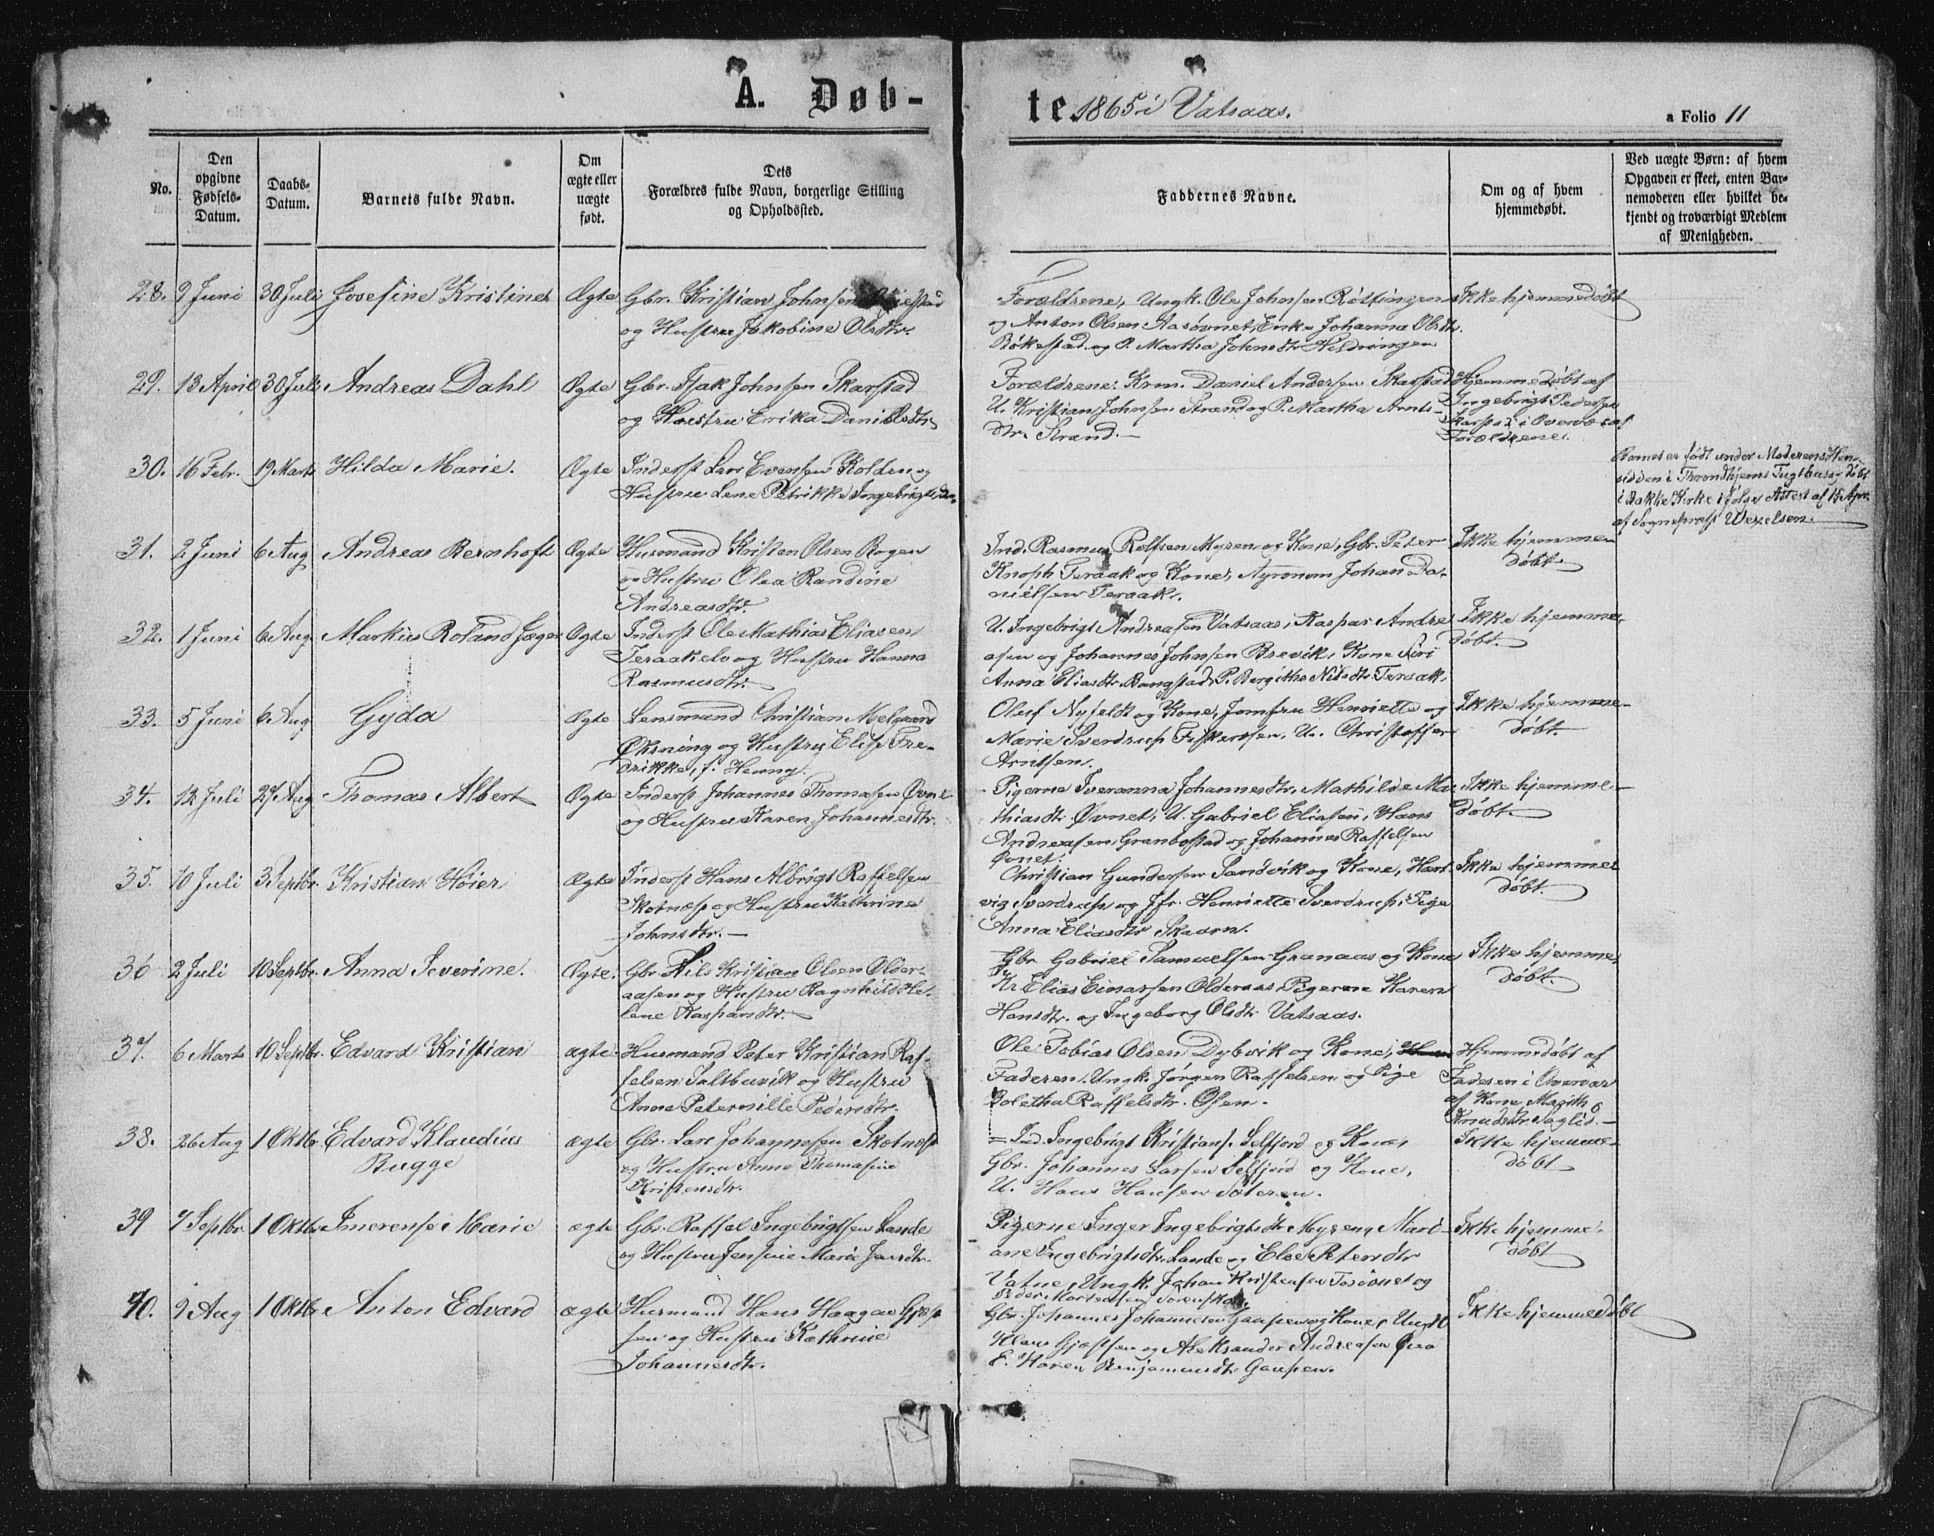 A. Døb-
te. 1865 i Vatsaas.
a Folio 11
No.
Den
opgivne
Fødsels-
Datum.
Daabs-
Datum.
Barnets fulde Navn.
Om
ægte eller
uægte
født.
Dets
Forældres fulde Navn, borgerlige Stilling
og Opholdssted.
Faddernes Navne.
Om og af hvem
hjemmedøbt.
Ved uægte Børn: af hvem
Opgaven er skeet, enten Bar-
nemoderen eller hvilket be-
kjendt og troværdigt Medlem
af Menigheden.
28. 9 Juni 30 Juli Josefine Kristine Ægte
Gbr. Kristian Johnsen
og Hustru Jakobine Olsdtr.
Forældrene, Ungk. Ole Johnsen Røttingen
og Anton Olsen Aasøvnet, Enke Johanna Olsdtr.
Bøkestad og P. Martha Johnsdtr. Hildringen
Ikke hjemmedøbt
29. 13 April 30 Juli Andreas Dahl Ægte
Gbr. Isak Johnsen Skarstad
og Hustru Erika Danielsdtr.
Forældrene. Krm. Daniel Andersen Skarstad
U. Kristian Johnsen Strand og P. Martha Arnts-
dtr. Strand.
Hjemmedøbt af
Ingebrigt Pedersen
i Overvær af
Forældrene.
30. 16 Febr. 19 Marts Hilda Marie. Ægte
Inderst Lars Evensen Kolden og
Hustru Lene Petrikke Ingebrigtsdtr.
Barnet er født under Moderens Hen-
sidden i Throndhjems Tugthus og døbt
i Bakke Kirke ifølge Attest af 15 Apr.
af Sognepræst Wexelsen.
31. 2 Juni 6 Aug Andreas Bernhoft Ægte
Husmand Kristen Olsen Rogen
og Hustru Olea Randine
Andreasdtr.
Ind. Rasmus Rolfsen Myren og Kone, Gbr. Peter
Knoph Teraak og Kone, Agronom Johan Da-
nielsen Teraak.
Ikke hjemme
døbt.
32. 1 Juni 6 Aug. Markus Roland Jæger Ægte
Inderst Ole Mathias Eliasen
Teraakelv og Hustru Hanna
Rasmusdtr.
U. Ingebrigt Andreasen Vatsaas, Kaspar Andre
asen og Johannes Johnsen Brevik, Kone Siri
Anna Eliasdtr. Bangstad, P. Bergithe Nilsdtr. Teraak,
Ikke hjemme,
døbt.
33. 5 Juni 6 Aug. Gyda Ægte
Lensmand Christian Melgaard
Øksning og Hustru Elise Fre-
drikke, f. Henny.
Oluf Nyfeldt og Kone, Jomfru Henriette og
Marie Sverdrup Fiskerosen, U. Christoffer
Arntsen.
Ikke hjemme-
døbt.
34. 12 Juli 27 Aug. Thomas Albert Ægte
Inderst Johannes Thomasen Øvnet
og Hustru Karen Johannesdtr.
Pigerne Sveranna Johannesdtr. Mathilde Ma-
thiasdtr. Øvnet, U. Gabriel Eliasen, Hans
Andreasen, Granbostad og Johannes Raffelsen
Øvnet.
Ikke hjemme-
døbt.
35. 10 Juli 3 Septbr. Kristian Høier Ægte
Inderst Hans Albrigt Raffelsen
Skotnæs og Hustru Kathrine
Johnsdtr.
Christian Gundersen Sandvik og Kone, Hart-
vig Sverdrup og Jfr. Henriette Sverdrup, Pige
Anna Eliasdtr.
Ikke hjemme
døbt.
36 2 Juli 10 Septbr. Anna Severine. Ægte.
Gbr. Nils Kristian Olsen Older-
aasen og Hustru Ragnhild He-
lene Kaspardtr.
Gbr. Gabriel Samuelsen Granaas og Kone
Kr. Elias Einarsen Olderaas, Pigerne Karen
Hansdtr. og Ingeborg Olsdtr. Vatsaas.
Ikke hjemme,
døbt.
37. 6 Marts 10 Septbr. Edvard Kristian ægte
Husmand Peter Kristian Raf-
felsen Saltbuvik og Hustru
Anne Peternille Pedersdtr.
Ole Tobias Olsen Dybvik og Kone,
Faderen. Ungk. Jørgen Raffelsen og Pige
Boletha Raffelsdtr. Osen.
Hjemmedøbt af
Faderen i Overvær
af Kone Magith
Knudsdtr.
38. 26 Aug 1 Oktbr. Edvard Klaudius
Bugge ægte
Gbr. Lars Johannesen Skotnæs
og Hustru Anne Thomasine
Kristensdtr.
Ind. Ingebrigt Kristians. Selfjord og Kone,
Gbr. Johannes Larsen Selfjord og Kone,
U. Hans Hansen
Ikke hjemme-
døbt.
39 7 Septbr. 1 Oktbr. Imerense Marie ægte
Gbr. Raffal Ingebrigtsen Lande
og Hustru Jensine Marie Jensdtr.
Pigerne Inger Ingebrigtsdtr. Myren, Mari-
ane Ingebrigtsdtr. Lande og Else Petersdtr.
Vatne, Ungk. Johan Kristensen Torøvnet og
Peder Mortensen
Ikke hjemme-
døbt
40. 9 Aug 1 Oktbr Anton Edvard ægte
Husmand Hans Haagen Gjæs-
sen og Hustru Kathrine
Johannesdtr.
Gbr. Johannes Johannesen Gaupen og Kone, Ungk
Klaus Gjæssen og Aleksander Andreasen
E. Karen Benjamindtr. Gaupen.
Ikke hjemmedøbt